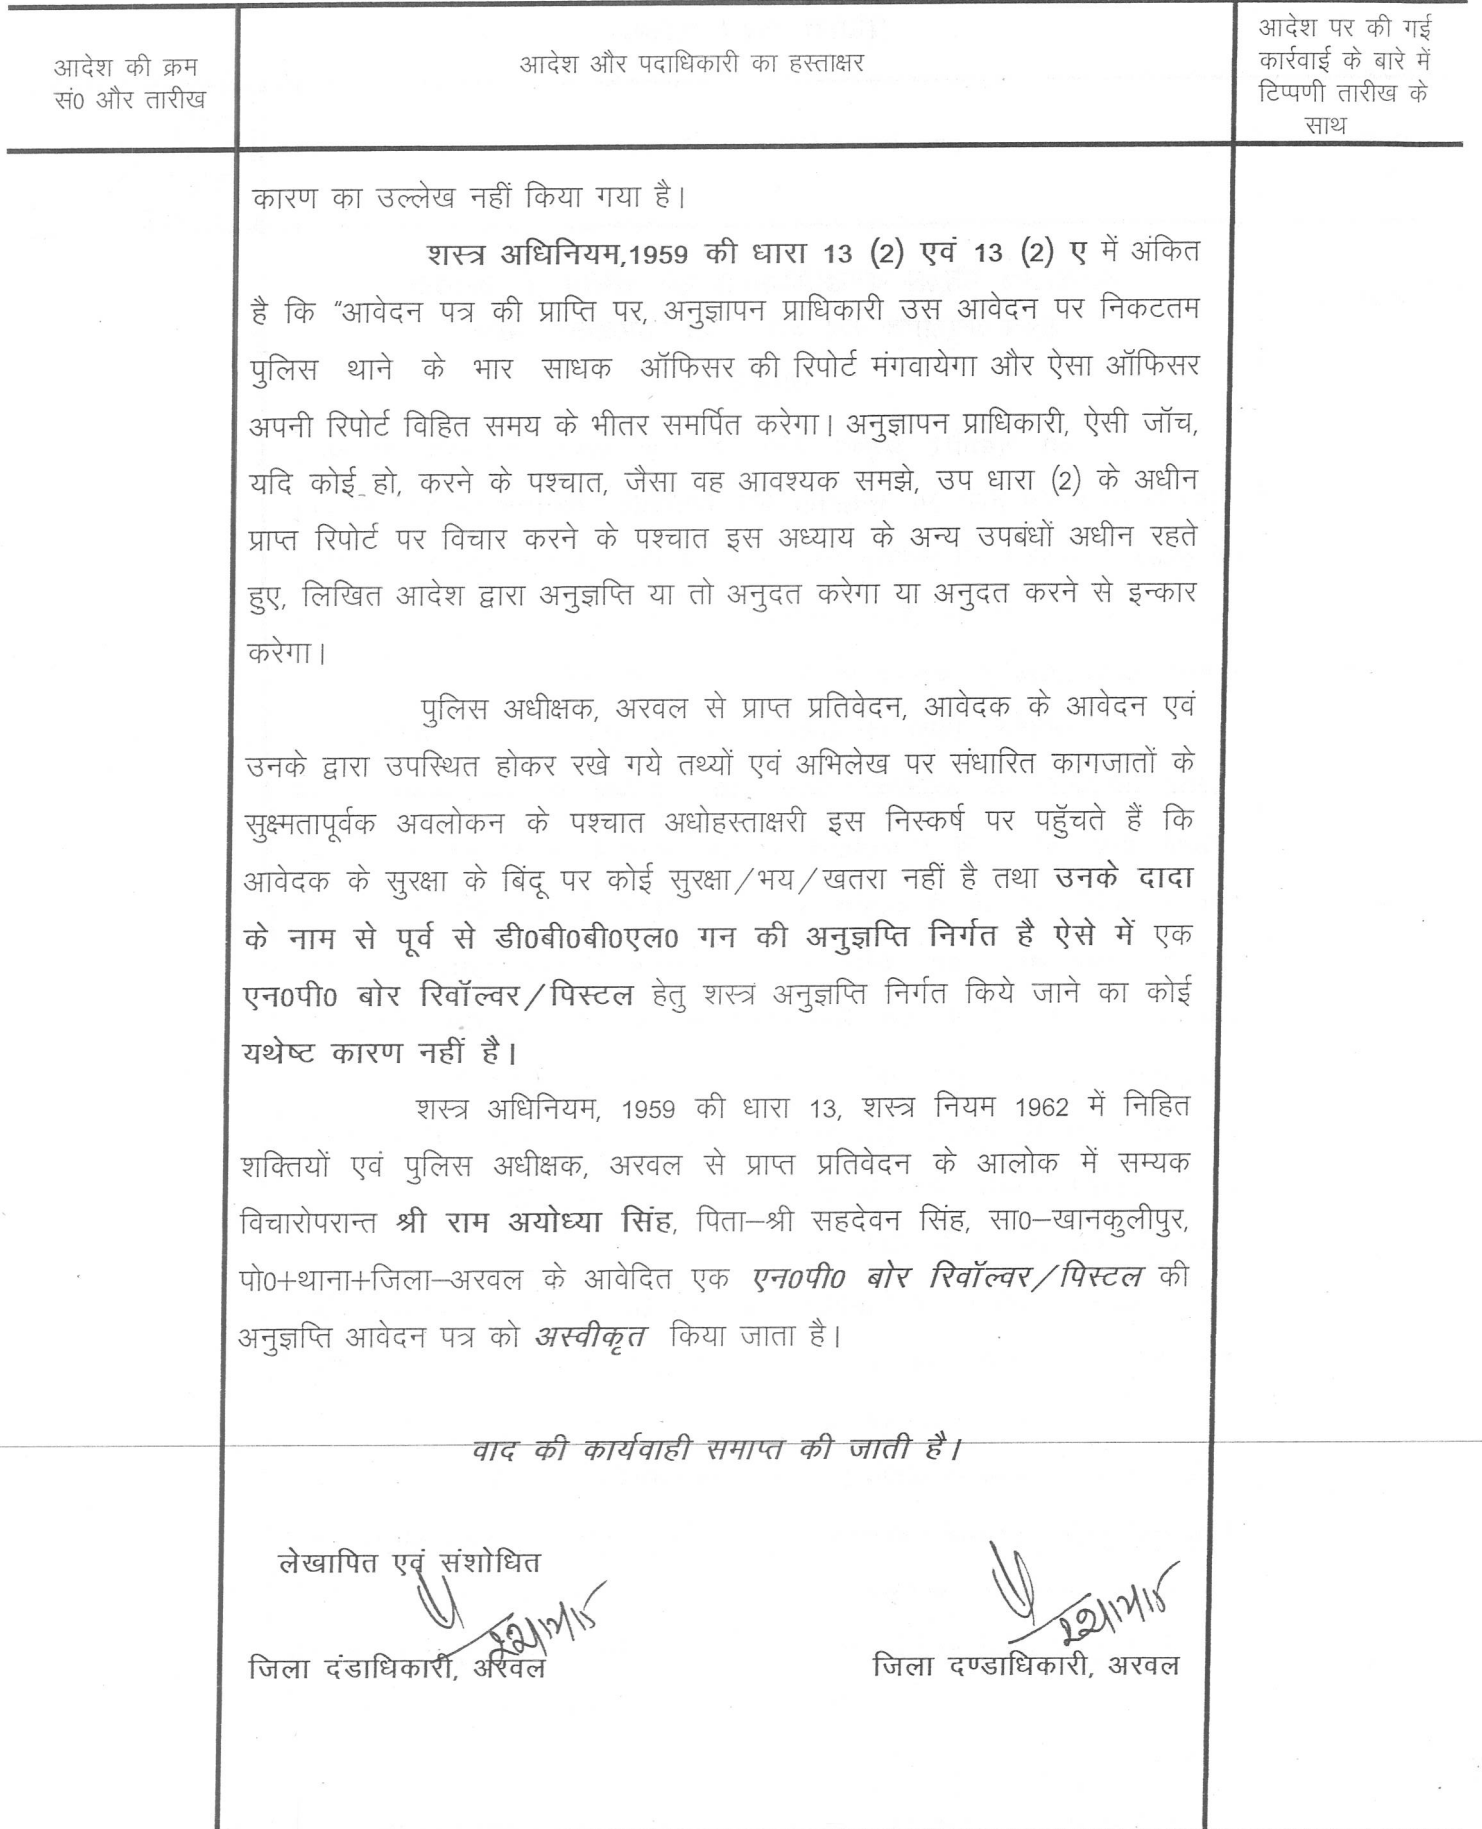 आदेश की क्रम
सं0 और तारीख
आदेश और पदाधिकारी का हस्ताक्षर
आदेश पर की गई
कार्रवाई के बारे में
टिप्पणी तारीख के
साथ
कारण का उल्लेख नहीं किया गया है।
शस्त्र अधिनियम,1959 की धारा 13 (2) एवं 13 (2) ए में अंकित
है कि “आवेदन पत्र की प्राप्ति पर, अनुज्ञापन प्राधिकारी उस आवेदन पर निकटतम
पुलिस थाने के भार साधक ऑफिसर की रिपोर्ट मंगवायेगा और ऐसा ऑफिसर
अपनी रिपोर्ट विहित समय के भीतर समर्पित करेगा। अनुज्ञापन प्राधिकारी, ऐसी जॉच,
यदि कोई हो, करने के पश्चात, जैसा वह आवश्यक समझे, उप धारा (2) के अधीन
प्राप्त रिपोर्ट पर विचार करने के पश्चात इस अध्याय के अन्य उपबंधों अधीन रहते
हुए, लिखित आदेश द्वारा अनुज्ञप्ति या तो अनुदत करेगा या अनुदत करने से इन्कार
करेगा।
पुलिस अधीक्षक, अरवल से प्राप्त प्रतिवेदन, आवेदक के आवेदन एवं
उनके द्वारा उपस्थित होकर रखे गये तथ्यों एवं अभिलेख पर संधारित कागजातों के
सुक्ष्मतापूर्वक अवलोकन के पश्चात अधोहस्ताक्षरी इस निस्कर्ष पर पहुँचते हैं कि
आवेदक के सुरक्षा के बिंदू पर कोई सुरक्षा/भय/खतरा नहीं है तथा उनके दादा
के नाम से पूर्व से डी0बी0बी0एल0 गन की अनुज्ञप्ति निर्गत है ऐसे में एक
एन0पी0 बोर रिवॉल्वर/पिस्टल हेतु शस्त्र अनुज्ञप्ति निर्गत किये जाने का कोई
यथेष्ट कारण नहीं है।
शस्त्र अधिनियम, 1959 की धारा 13, शस्त्र नियम 1962 में निहित
शक्तियों एवं पुलिस अधीक्षक, अरवल से प्राप्त प्रतिवेदन के आलोक में सम्यक
विचारोपरान्त श्री राम अयोध्या सिंह, पिता–श्री सहदेवन सिंह, सा0–खानकुलीपुर,
पो0+थाना+जिला–अरवल के आवेदित एक एन0पी0 बोर रिवॉल्वर/पिस्टल की
अनुज्ञप्ति आवेदन पत्र को अस्वीकृत किया जाता है।
वाद की कार्यवाही समाप्त की जाती है।
लेखापित एवं संशोधित
जिला दंडाधिकारी, अरवल
जिला दण्डाधिकारी, अरवल